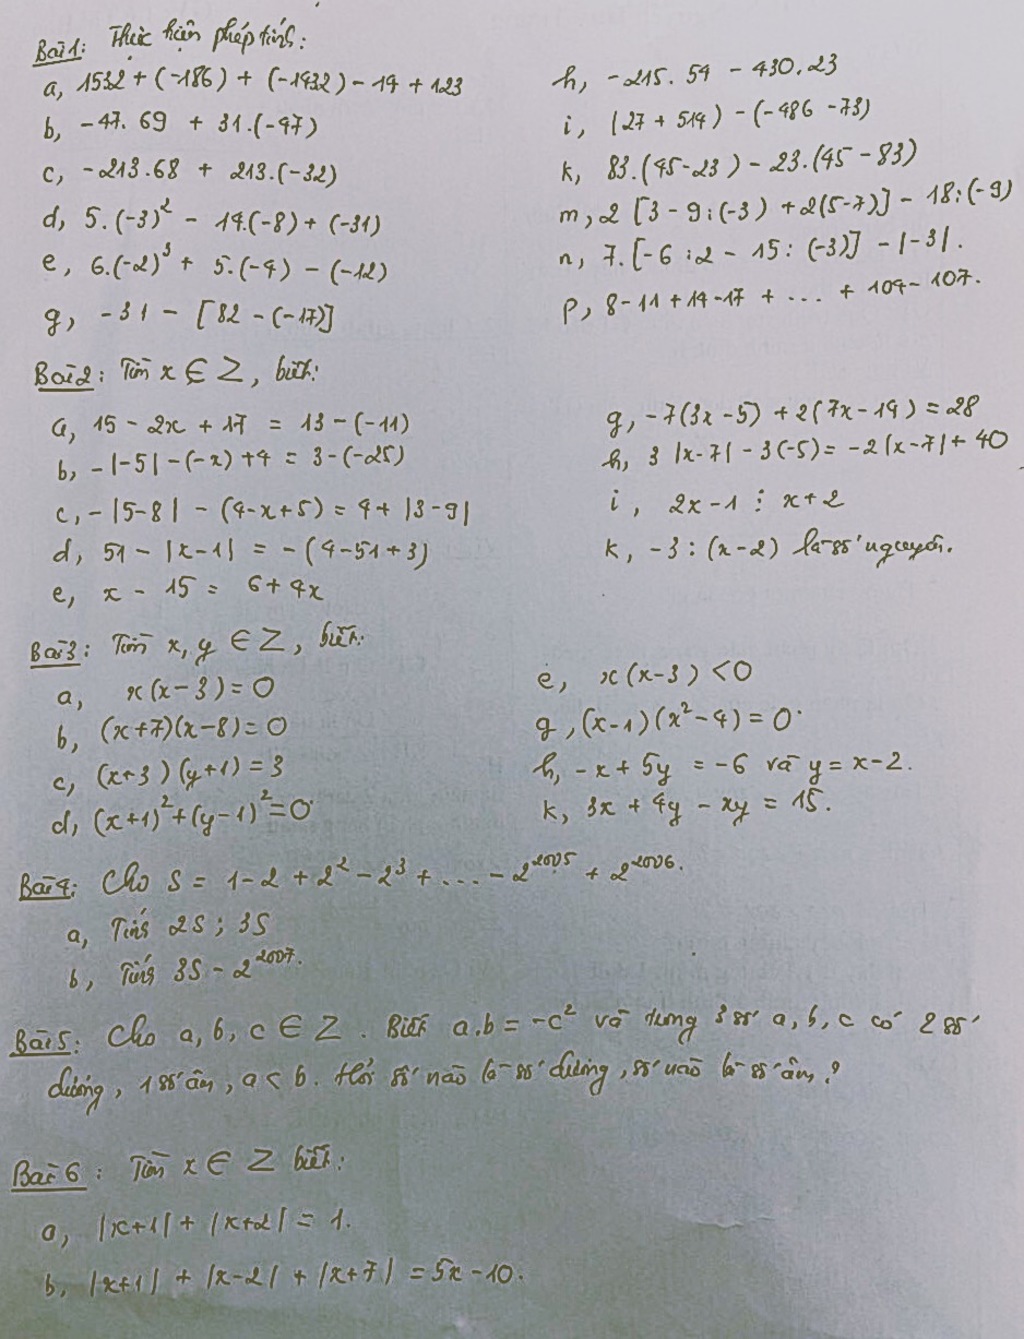 Bài 1: Thực hiện phép tính:
a, 1532 + (-186) + (-1432) - 14 + 123
b, -47. 69 + 31.(-47)
c, -213.68 + 213.(-32)
d, 5.(-3)² - 14.(-8) + (-31)
e, 6.(-2)³ + 5.(-4) - (-12)
g, -31 - [82 - (-17)]
h, -215. 54 - 430.23
i, (27 + 514) - (-486 - 73)
k, 83.(45-23) - 23.(45-83)
m, 2 [3 - 9:(-3) + 2(5-7)] - 18:(-9)
n, 7.[-6:2 - 15: (-3)] - |-3|.
p, 8-11+14-17 + ... + 104-107.
Bài 2: Tìm x ∈ Z, biết:
a, 15 - 2x + 17 = 13 - (-11)
b, -|-5| -(-x) + 4 = 3-(-25)
c, -|5-8| - (4-x+5) = 4 + |3-9|
d, 51 - |x-1| = -(4-51+3)
e, x - 15 = 6+4x
g, -7(3x-5) + 2(7x-14) = 28
h, 3 |x-7| - 3(-5) = -2|x-7| + 40
i, 2x-1 ⋮ x+2
k, -3 : (x-2) là số nguyên.
Bài 3: Tìm x, y ∈ Z, biết:
a, x(x-3) = 0
b, (x+7)(x-8) = 0
c, (x+3)(y+1) = 3
d, (x+1)² + (y-1)² = 0
e, x(x-3) < 0
g, (x-1)(x²-4) = 0
h, -x + 5y = -6 và y = x-2.
k, 3x + 4y - xy = 15.
Bài 4: Cho S = 1-2 + 2² - 2³ + ... - 2²⁰⁰⁵ + 2²⁰⁰⁶.
a, Tính 2S ; 3S
b, Tính 3S - 2²⁰⁰⁷.
Bài 5: Cho a, b, c ∈ Z. Biết a.b = -c² và trong 3 số a, b, c có 2 số
dương, 1 số âm, a < b. Hỏi số nào là số dương, số nào là số âm?
Bài 6: Tìm x ∈ Z biết:
a, |x+1| + |x+2| = 1.
b, |x+1| + |x-2| + |x+7| = 5x-10.